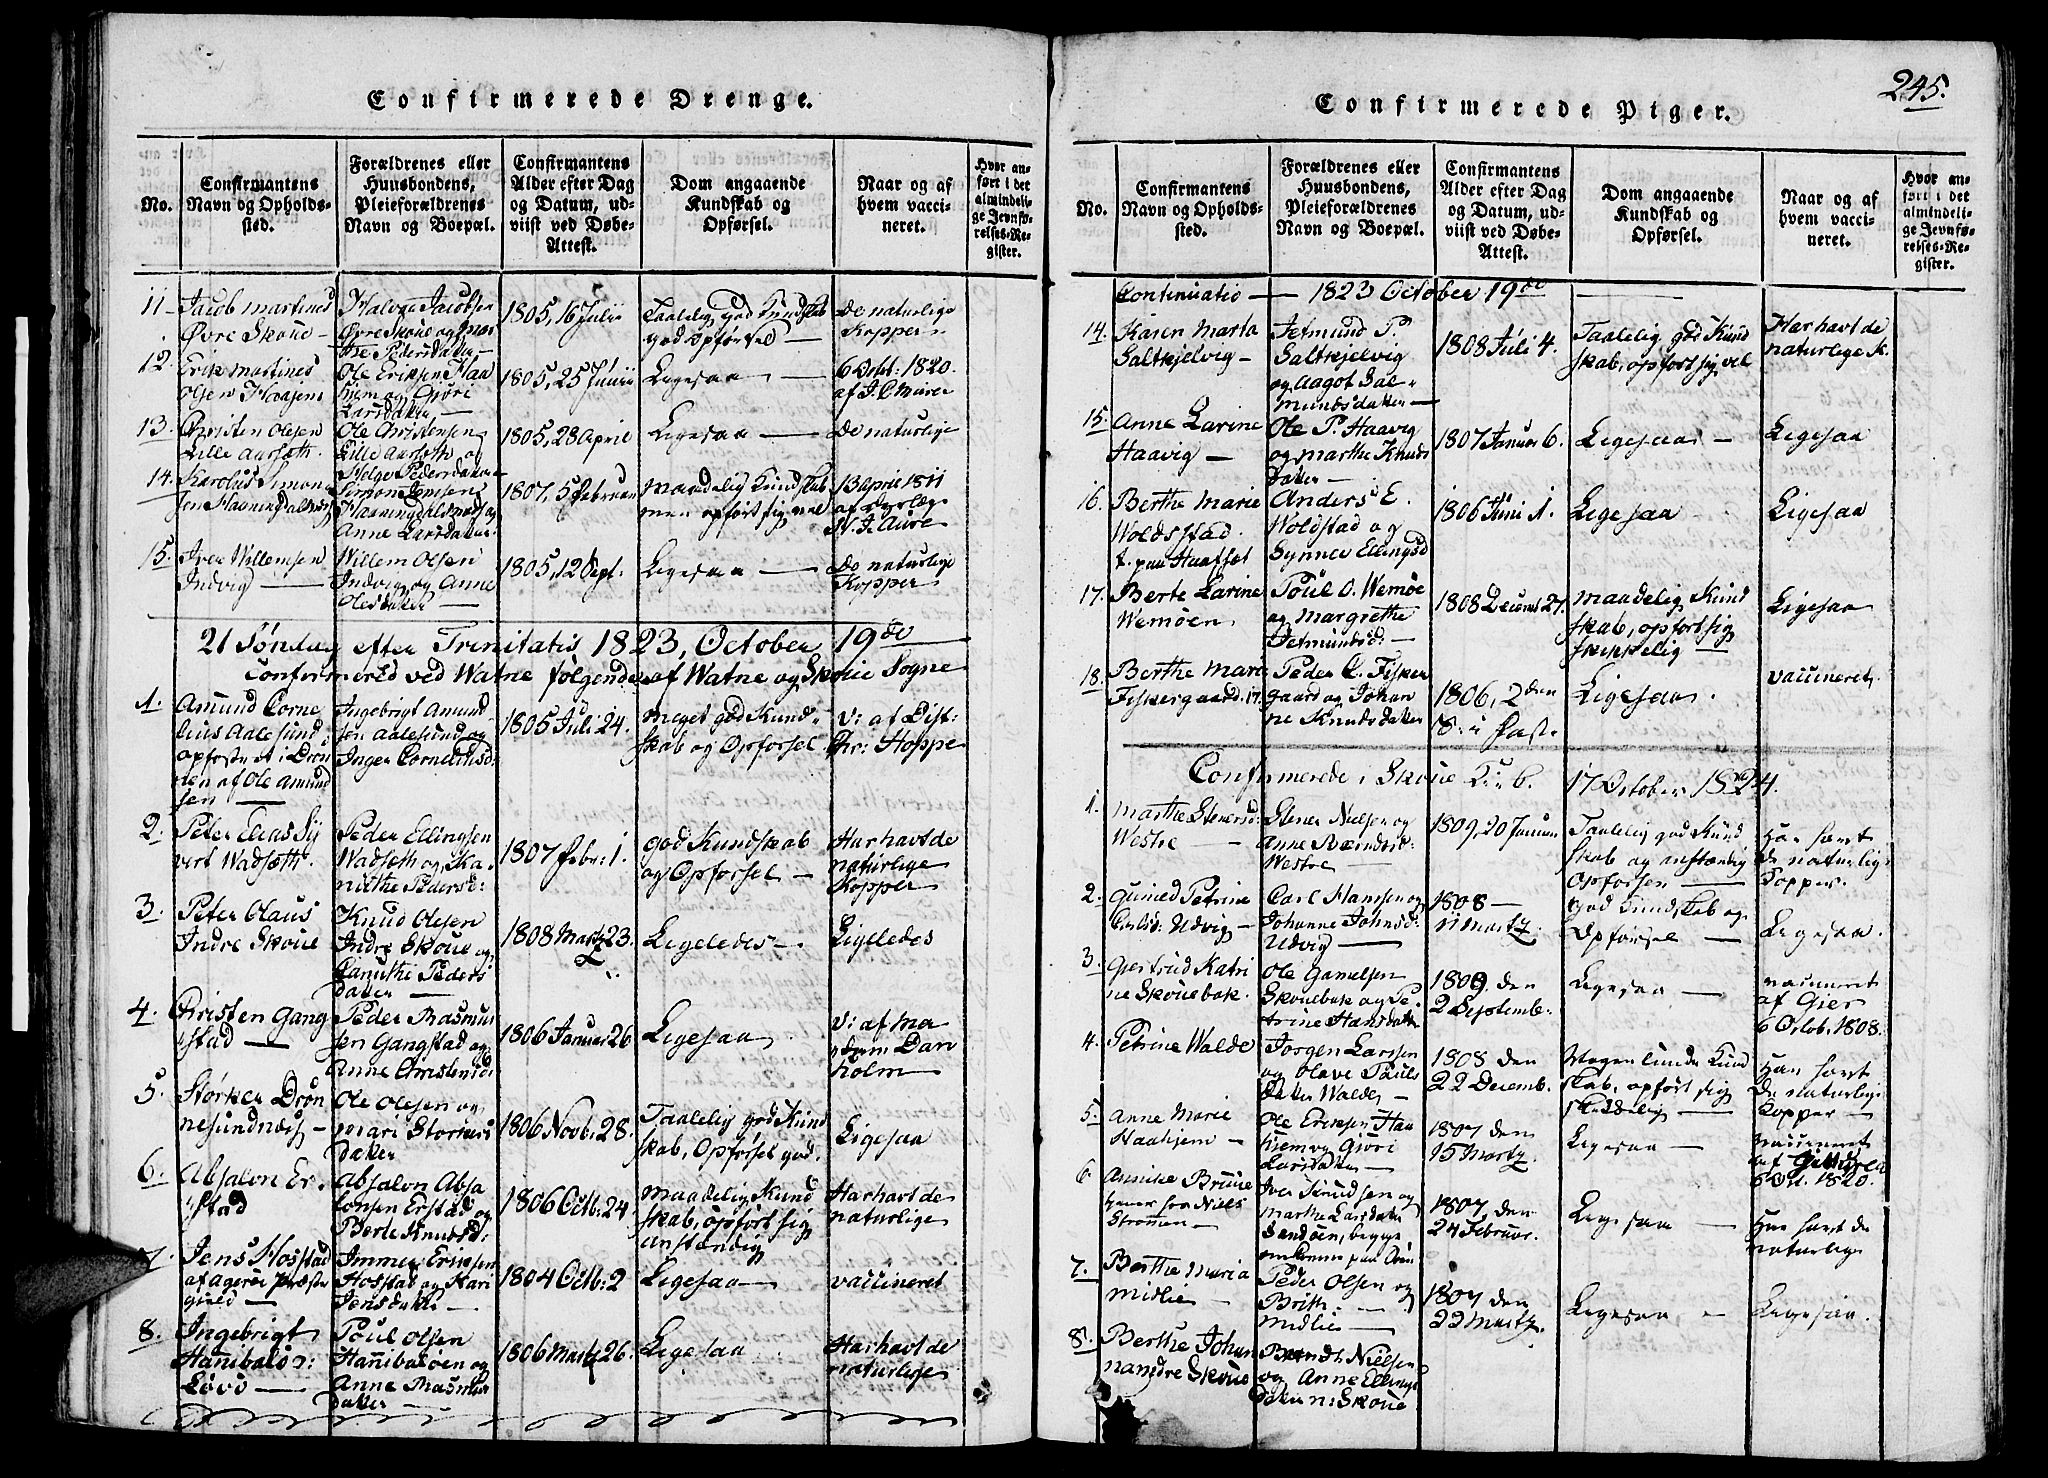 Confirmerede Drenge.
No.
Confirmantens
Navn og Opholds-
sted.
Forældrenes eller
Huusbondens,
Pleieforældrenes
Navn og Boepæl.
Confirmantens
Alder efter Dag
og Datum, ud-
viist ved Døbe-
Attest.
Dom angaaende
Kundskab og
Opførsel.
Naar og af
hvem vacci-
neret.
Hvor an-
ført i det
almindeli-
ge Jevnfø-
relses-Re-
gister.
11.
Jacob Martinus
Øvre Skoue
Halvor Jacobsen
Øvre Skoue og Mar
the Pedersdatter
1805, 16 Julii
Taalelig god Kundskab
god Opførsel
De naturlige
Kopper
12.
Erik Martines
Olsen Haajem
Ole Eriksen Haa
hjem og Giøri
Larsdatter
1805, 25 Junii
Ligesaa
6 Octb: 1820
af
13.
Christen Olesen
Lille Aarsæth
Ole Christensen
Lille Aarsæth og
Helge Pedersdatter
1805, 28 April
Ligesaa
De naturlige
14.
Karolus Simon
sen
Simon Jensen
Anne Larsdatter
1807, 5 Februar
Maadelig Kundskab
men opført sig vel
13 April 1811
af
15.
Iver Willemsen
Indvig
Willem Olsen
Indvig og Anne
Olesdatter
1805, 12 Sept.
Ligesaa
De naturlige
Kopper
21 Søndag efter Trinitatis 1823, October 19de
Confirmered ved Watne følgende af Watne og Skoue Sogne
1.
Amund Corne
lius Aalesund,
opfostret i Drøn
nen af Ole Amund
sen
Ingebrigt Amund
sen Aalesund og
Inger Corneliusd:
1805 Juli 24.
Meget god Kund-
skab og Opførsel
v: af Dist:
Chr: Hoppe
2.
Peter Elias Sy
vert Wadsæth.
Peder Ellingsen
Wadsæth og Ka-
nutthe Pedersd:
1807 Febr: 1.
god Kundskab
og Opførsel
Har havt de
naturlige
Kopper
3.
Peter Olaus
Indre Skoue
Knud Olesen
Indre Skoue og
Canuthe Peders
datter
1808 Martz 23.
Ligeledes
Ligeledes
4.
Christen Gang
stad
Peder Rasmus
sen Gangstad og
Anne Christensd:
1806 Januar 26
Ligesaa
v: af Ma
dam Dan
holm
5.
Størker Drøn
nesundnæs
Ole Olesen og
Mari Størkers
datter
1806 Novb: 28.
Taalelig god Kund
skab, Opførsel god.
Ligesaa
6.
Absalon Er
stad
Absalon Absa
lonsen Erstad og
Berte Knudsd:
1806 Octb: 24.
Maadelig Kund
skab, opført sig
anstændig
Har havt de
naturlige
7.
Jens Hostad
af Agerøe Præste
gield
Immer Eriksen
Hostad og Kari
Jensdatter
1804 Octb: 2
Ligesaa
vaccineret
8.
Ingebrigt
Hannibalsø:
Løvø
Poul Olsen
Hannibaløen og
Anne Rasmus
datter
1806 Martz 26.
Ligesaa
Har havt de
naturlige
245.
Confirmerede Piger.
No.
Confirmantens
Navn og Opholds-
sted.
Forældrenes eller
Huusbondens,
Pleieforældrenes
Navn og Boepæl.
Confirmantens
Alder efter Dag
og Datum, ud-
viist ved Døbe-
Attest.
Dom angaaende
Kundskab og
Opførsel.
Naar og af
hvem vacci-
neret.
Hvor an-
ført i det
almindeli-
ge Jevnfø-
relses-Re-
gister.
Continuatio — 1823 October 19de
14.
Karen Marta
Saltkjelvig
Jetmund P.
Saltkjelvig
og Aagot Sal-
mundsdatter
1808 Juli 4.
Taalelig god Kund
skab, opført sig vel
Har havt de
naturlige K.
15.
Anne Larine
Haavig
Ole P. Haavig
og Marthe Knuds
datter
1807 Januar 6.
Ligesaa
Ligesaa
16.
Berthe Marie
Woldsstad
t. paa Haafsæt
Anders E.
Woldstad og
Synnev Ellingsd
1806 Juni 1.
Ligesaa
Ligesaa
17.
Berte Larine
Wemøen.
Poul O. Wemøe
og Margrethe
Jetmundsd:
1808 Decemb 27.
Maadelig Kund
skab, opført sig
skikkelig
Ligesaa
18.
Berthe Mari
Fiskergaard
Peder C. Fisker
gaard og Johan
ne Knudsdatter
1806, 2den
S. i Fast.
Ligesaa.
vaccineret
Confirmerede i Skoue 17 October 1824.
1.
Marthe Stenersd:
Westre
Stener Nielsen og
Anne Berndtsd:
Westre
1809, 20 Januar
Taalelig god Kund
skab og anstændig
Opførsel
Har havt
de naturlige
Kopper.
2.
Gunild Petrine
Carlsd: Udvig
Carl Hansen og
Johanne Johnsd:
Udvig
1808
11 Martz.
God Kundskab og
Opførsel
Ligesaa.
3.
Gertrud Katri
ne Skouebak.
Ole Gamelsen
Skouebak og Pe
trine Hansdatter
1809. den
2 Septemb.
Ligesaa
vaccineret
af Gier
6 Octob. 1808.
4.
Petrine Walde
Jørgen Larssen
og Olave Pouls
datter Walde
1808 den
22 Decemb.
Megen Kund
skab, opført sig
skikkelig
Har havt
de naturlige
Kopper
5.
Anne Marie
Haahjem
Ole Eriksen Haa
hjem og Giøri
Larsdatter
1807 den
15 Martz.
Ligesaa
vaccineret
af
6 Oct. 1820.
6
Annike Brune
Niels
Strømmen
Iver Knudsen og
Marthe Larsdatter
Sandøen, begge
1807, den
24 Februar.
Ligesaa
Har havt de
naturlige
7.
Berthe Maria
Midlie
Peder Olsen og
Brith
Midlie
1807 den
22 Martz.
Ligesaa
Ligesaa.
8.
Berthe Johan
na Indre Skoue
Berndt Nielsen
og Anne Ellings
datter Skoue.